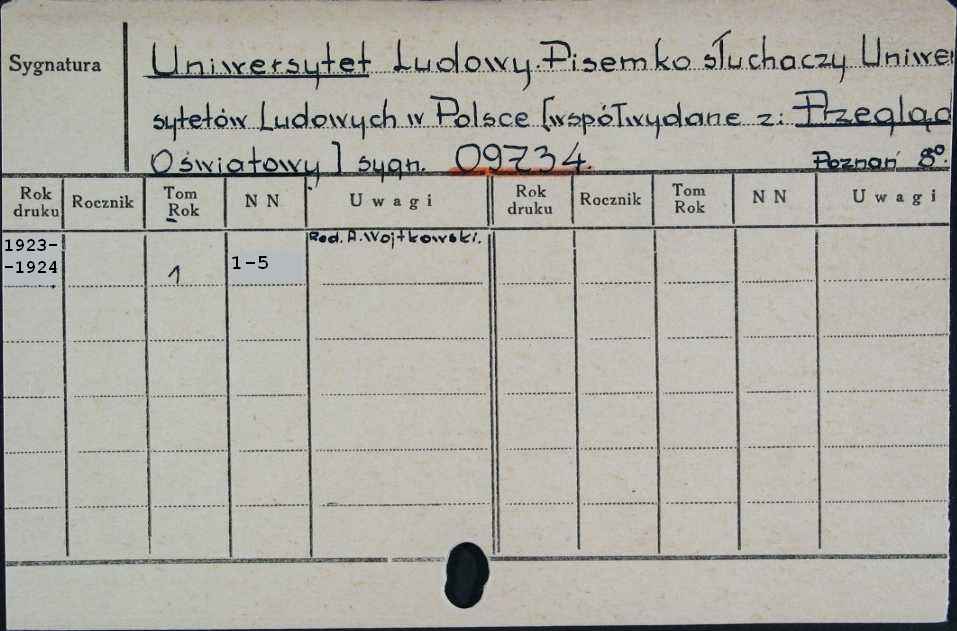 Sygnatura
Uniwersytet Ludowy. Pisemko słuchaczy Uniwer
sytetów Ludowych w Polsce [współwydane z: Przegląd
Oświatowy] sygn. 09734. Poznań 8°.
Rok druku Rocznik Tom Rok N N Uwagi Rok druku Rocznik Tom Rok N N Uwagi
1923- Red. A. Wojtkowski.
-1924 1 1-5